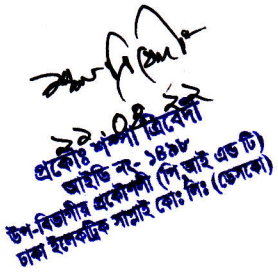 ২২.০৪.২২
প্রকৌঃ শম্পা ত্রিবেদী
আইডি নং- ১৪৯৮
উপ-বিভাগীয় প্রকৌশলী (পি আই এন্ড টি)
ঢাকা ইলেকট্রিক সাপ্লাই কোঃ লিঃ (ডেসকো)